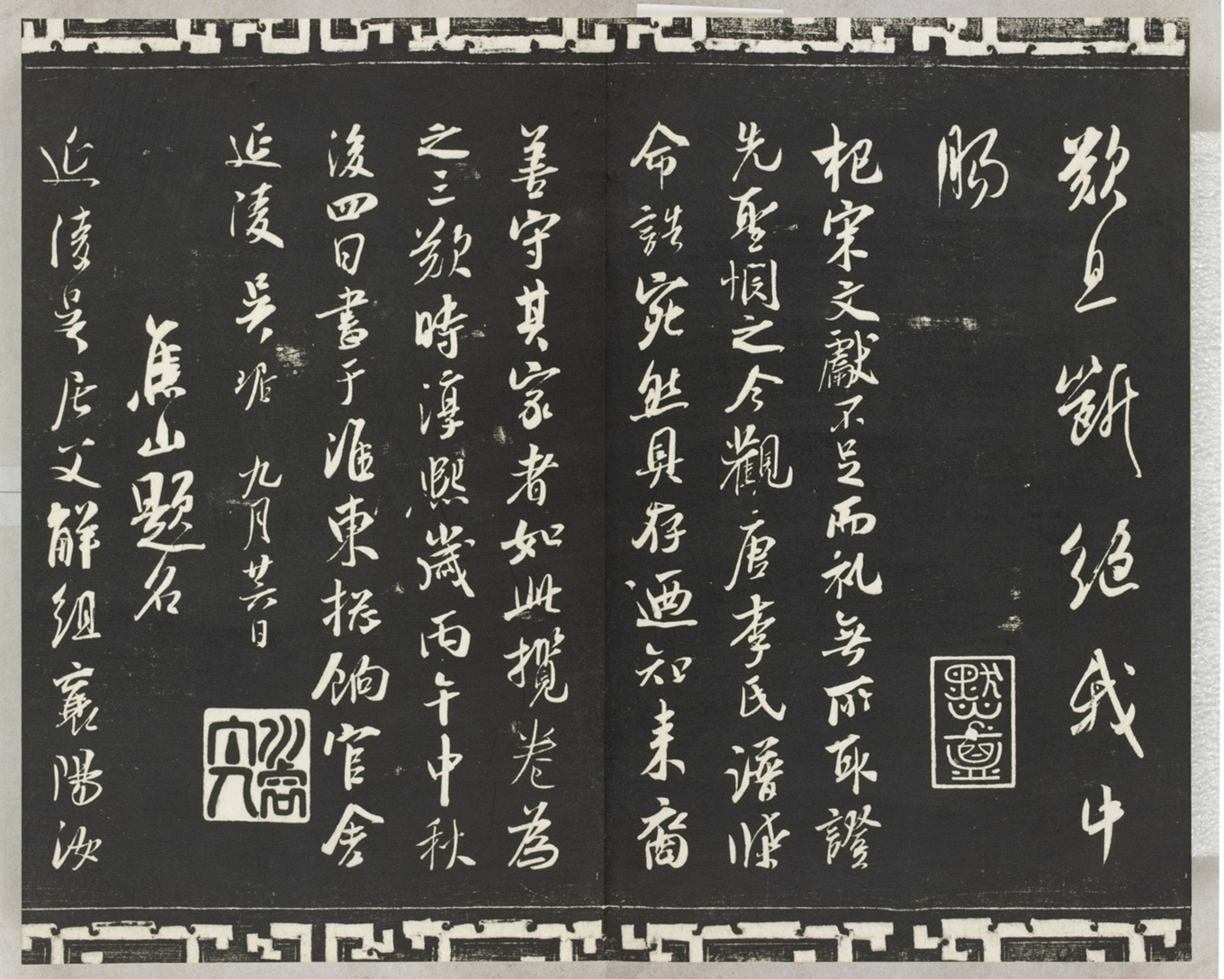 歎息斷絕我中
腸
杞宋文獻不足而礼無所取證
先聖惘之今觀唐李氏譜牒
命誥宛然具存迺知来裔
善守其家者如此攬卷為
之三歎時淳熙歲丙午中秋
後四日書于淮東捴餉官舍
延陵吴琚 九月廿六日
焦山題名
延陵吴居父解組襄陽汝